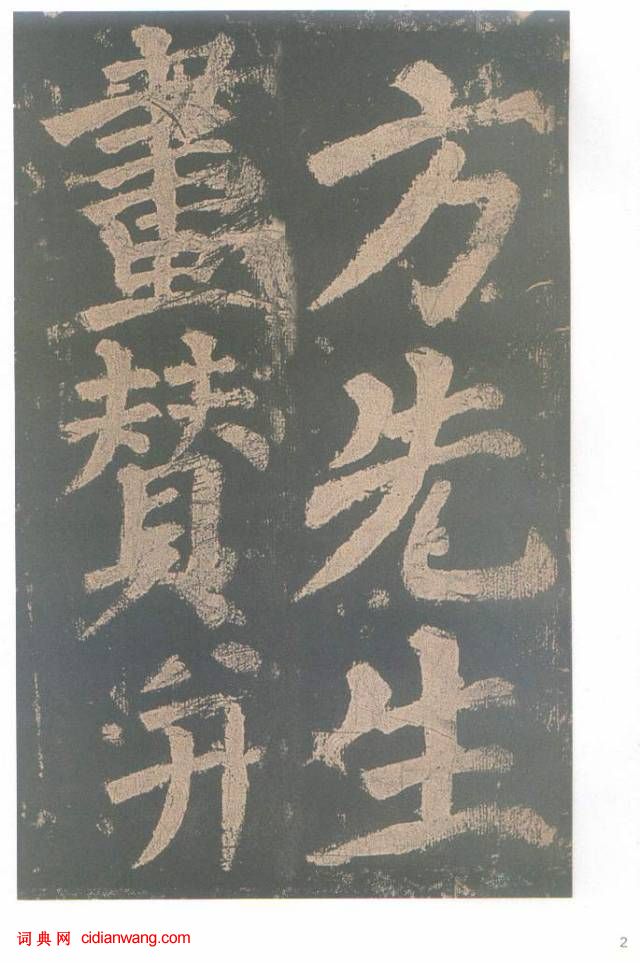 方先生
畫賛并
词典网 cidianwang.com
2